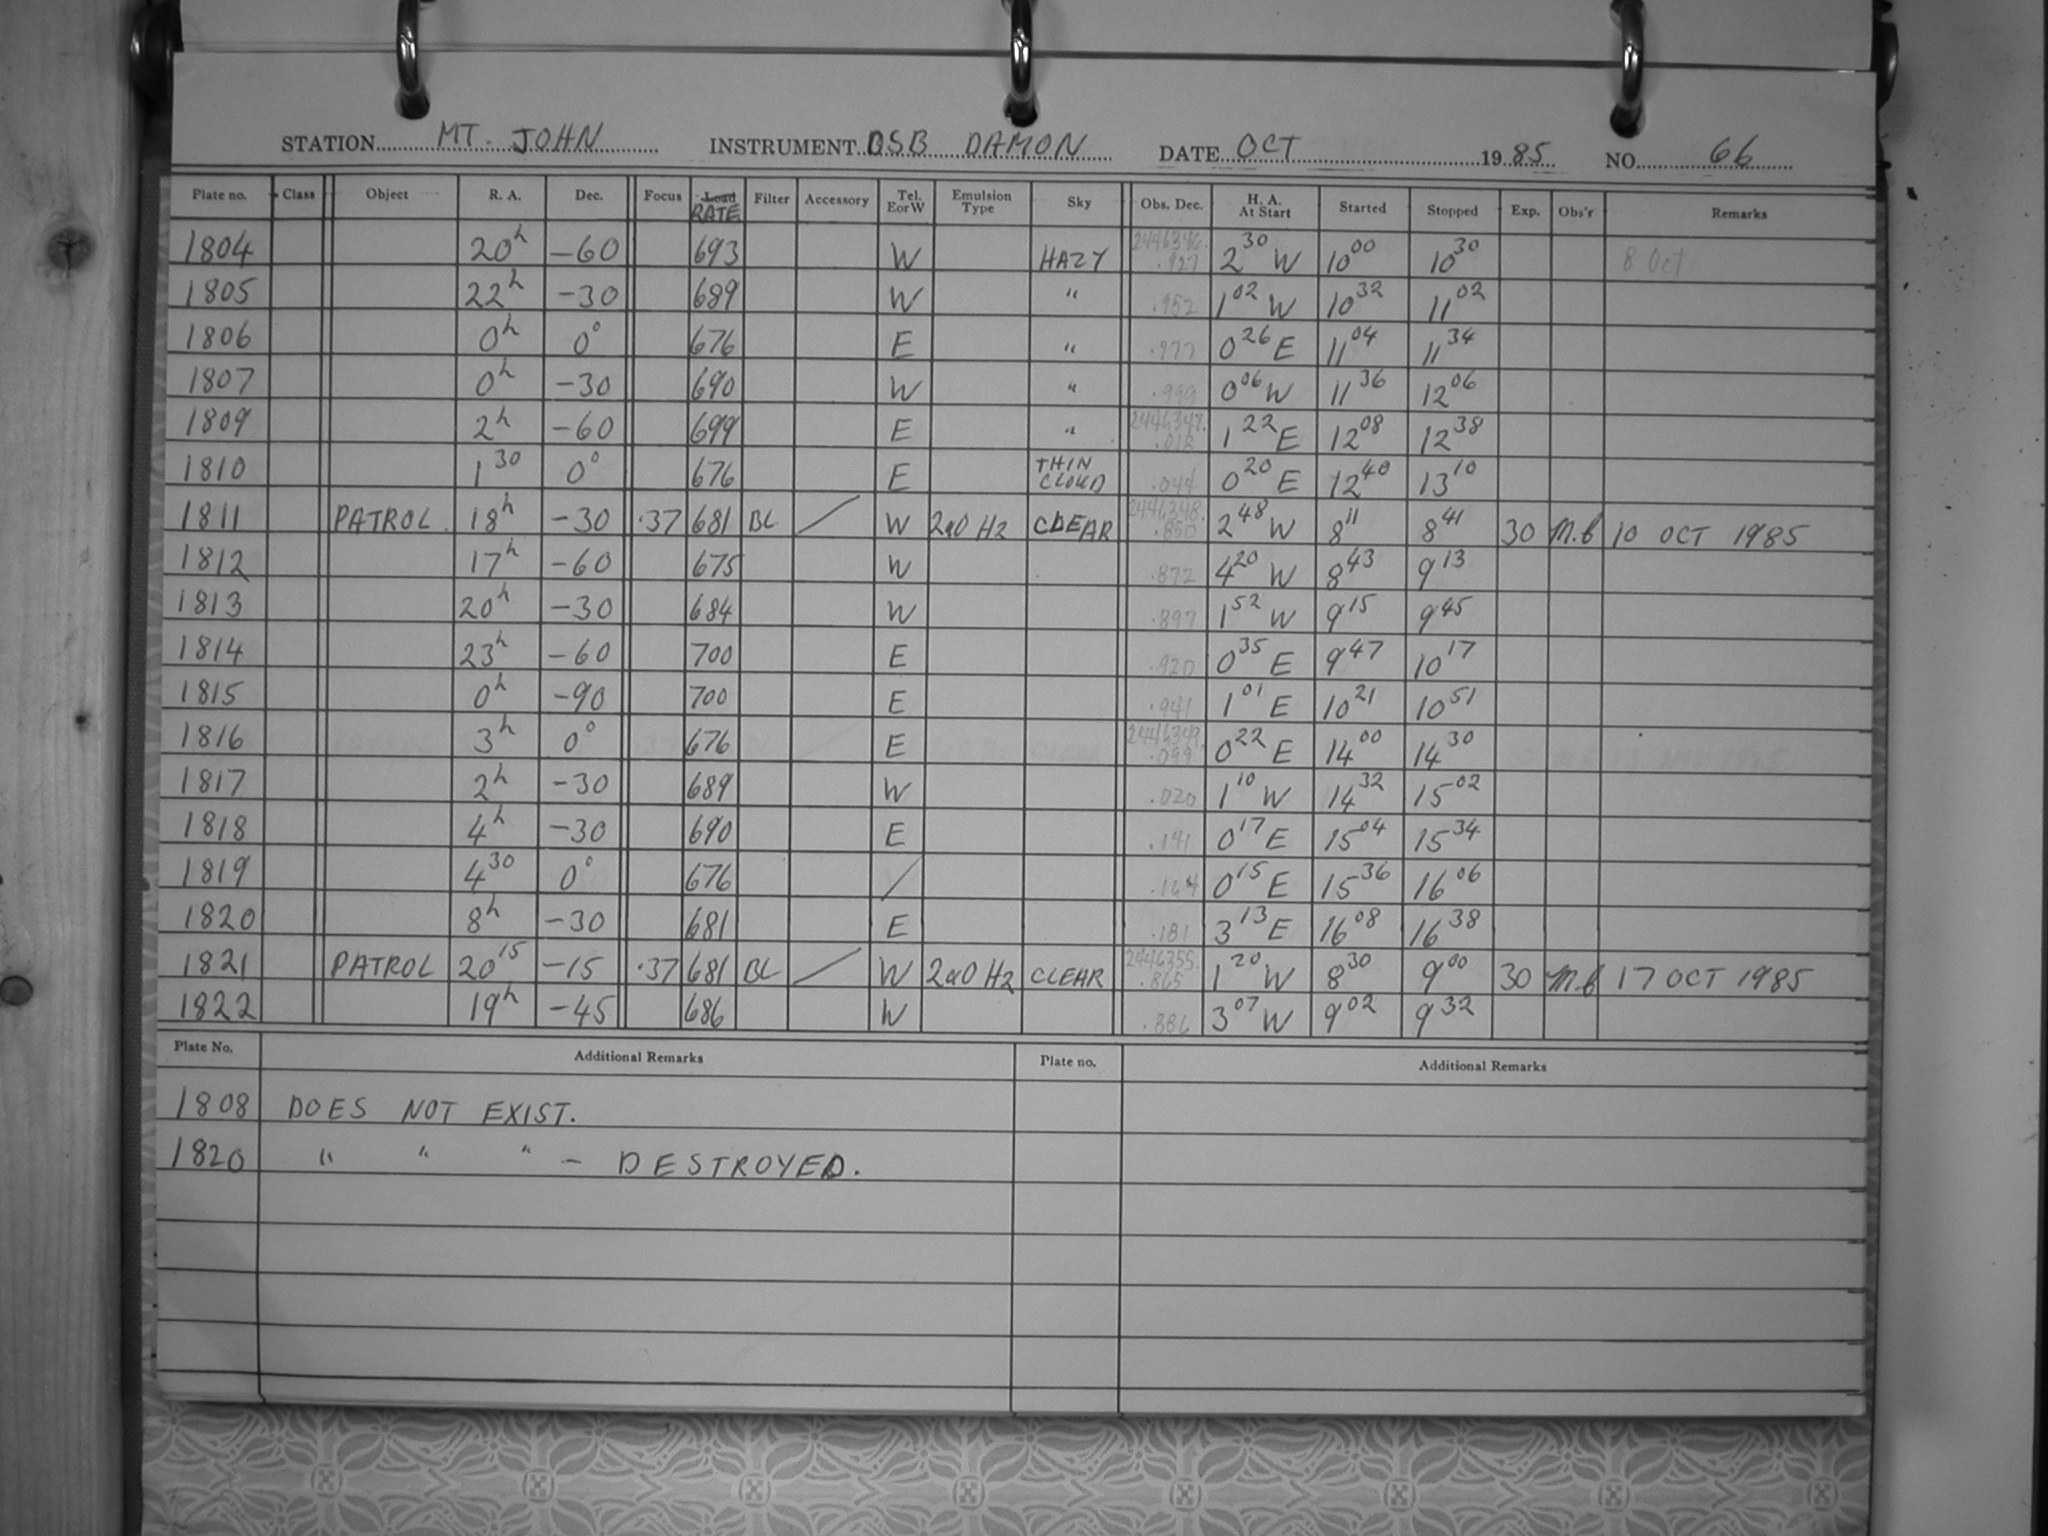 STATION MT. JOHN INSTRUMENT DSB DAMON DATE OCT 1985 NO. 66
Plate no. Class Object R. A. Dec. Focus Load RATE Filter Accessory Tel. E or W Emulsion Type Sky Obs. Dec. H. A. At Start Started Stopped Exp. Obs'r Remarks
1804 20h -60 693 W HAZY 2446346. .927 2 30 W 10 00 10 30 8 Oct
1805 22h -30 689 W " .952 1 02 W 10 32 11 02
1806 0h 0° 676 E " .977 0 26 E 11 04 11 34
1807 0h -30 690 W " .999 0 06 W 11 36 12 06
1809 2h -60 699 E " 2446347. 1 22 E 12 08 12 38
1810 1 30 0° 676 E THIN CLOUD .044 0 20 E 12 40 13 10
1811 PATROL 18h -30 .37 681 BL / W 2a0 H2 CLEAR 2446348. .850 2 48 W 8 11 8 41 30 M.C 10 OCT 1985
1812 17h -60 675 W .872 4 20 W 8 43 9 13
1813 20h -30 684 W .897 1 52 W 9 15 9 45
1814 23h -60 700 E .920 0 35 E 9 47 10 17
1815 0h -90 700 E .941 1 01 E 10 21 10 51
1816 3h 0° 676 E 2446349. .099 0 22 E 14 00 14 30
1817 2h -30 689 W .020 1 10 W 14 32 15 02
1818 4h -30 690 E .141 0 17 E 15 04 15 34
1819 4 30 0° 676 / .164 0 15 E 15 36 16 06
1820 8h -30 681 E .181 3 13 E 16 08 16 38
1821 PATROL 20 15 -15 .37 681 BL / W 2a0 H2 CLEAR 2446355. .865 1 20 W 8 30 9 00 30 M.C 17 OCT 1985
1822 19h -45 686 W .886 3 07 W 9 02 9 32
Plate No. Additional Remarks Plate no. Additional Remarks
1808 DOES NOT EXIST.
1820 " " " - DESTROYED.